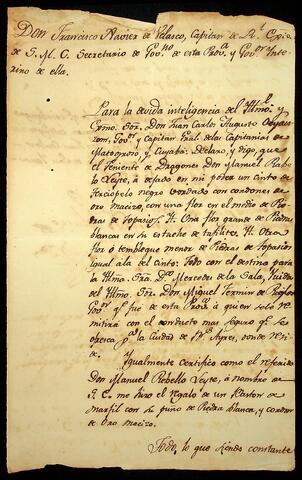 Don Francisco Xavier de Velasco, Capitan de
de S. M. C. Secretario de Gov.no de esta Prov.a y Gov.or Inte
rino de ella.
Para la devida inteligencia del Yltmo. y
Exmo. Sor. Don Juan Carlos Augusto Oyeau
zon, Gov.or y Capitan Gral. de las Capitanias de
Matogroso, y Cuyabá: Declaro, y digo, que
el Teniente de Dragones Don Manuel Rabe
lo Leyte, á dejado en mi poder un Cinto de
terciopelo negro bordado con cordones de
oro macizo, con una flor en el medio de Pie
dras de topasios. Yt. Una flor grande de Piedras
blancas en su estuche de tafilete. Yt. Otra
flor ó tembleque menor de Piedras de topasios
igual á la del cinto: Todo con el destino para
la Yltma. Sra. D.a Mercedes de la Sala, Viuda
del Yltmo. Sor. Don Miguel Fermin de Riglos
Gov.or q.e fue de esta Prov.a á quien solo re
mitirá con el conducto mas seguro q.e se
ofresca p.a la Ciudad de B.s Ayres, donde re
side.
Ygualmente certifico como el referido
Don Manuel Rebello Leyte, á nombre de
S. E. me hizo el regalo de un Baston de
Marfil con su puño de Piedra blanca, y cordon
de Oro macizo.
Todo lo que siendo constante